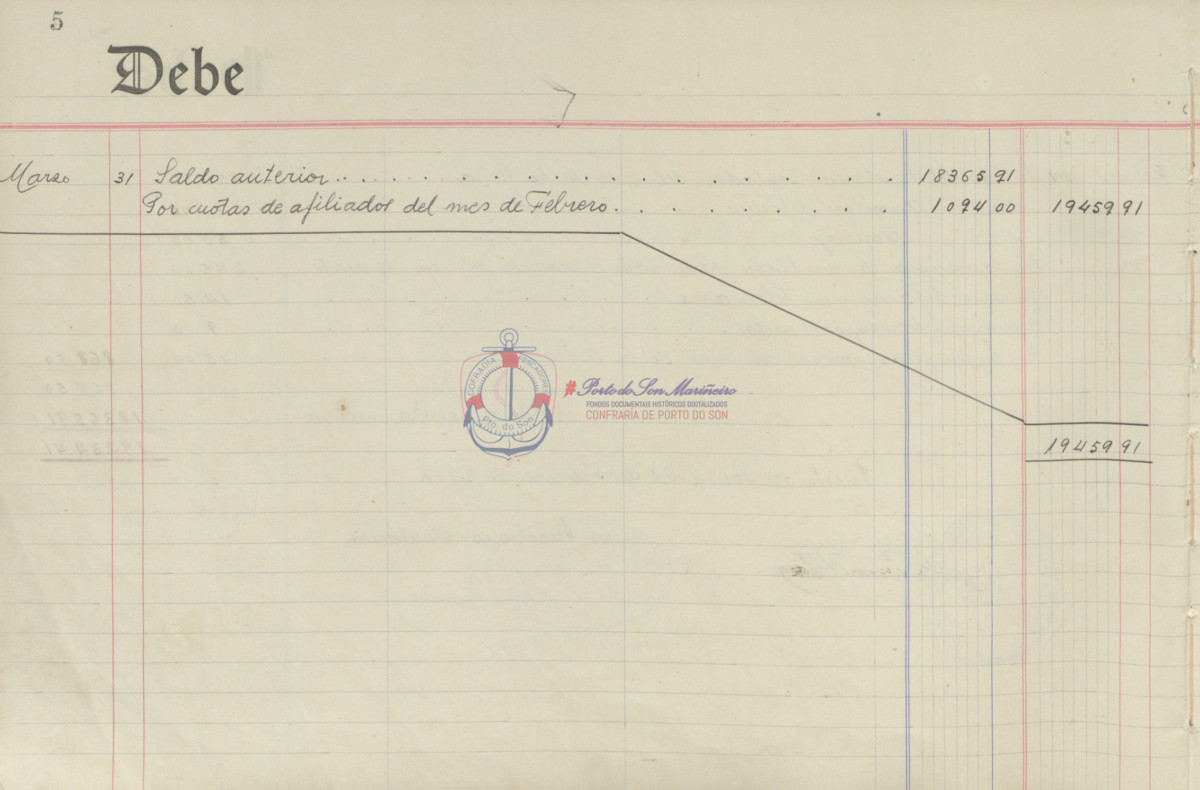 5
Debe
Marzo 31 Saldo anterior. . . . . . . . . . . . . . . . 18365 91
Por cuotas de afiliados del mes de Febrero. . . . . . . . . 1094 00 19459 91
COFRADIA PESCADORES
Pto. do Son
#PortodoSonMariñeiro
FONDOS DOCUMENTAIS HISTÓRICOS DIGITALIZADOS
CONFRARÍA DE PORTO DO SON
19459 91